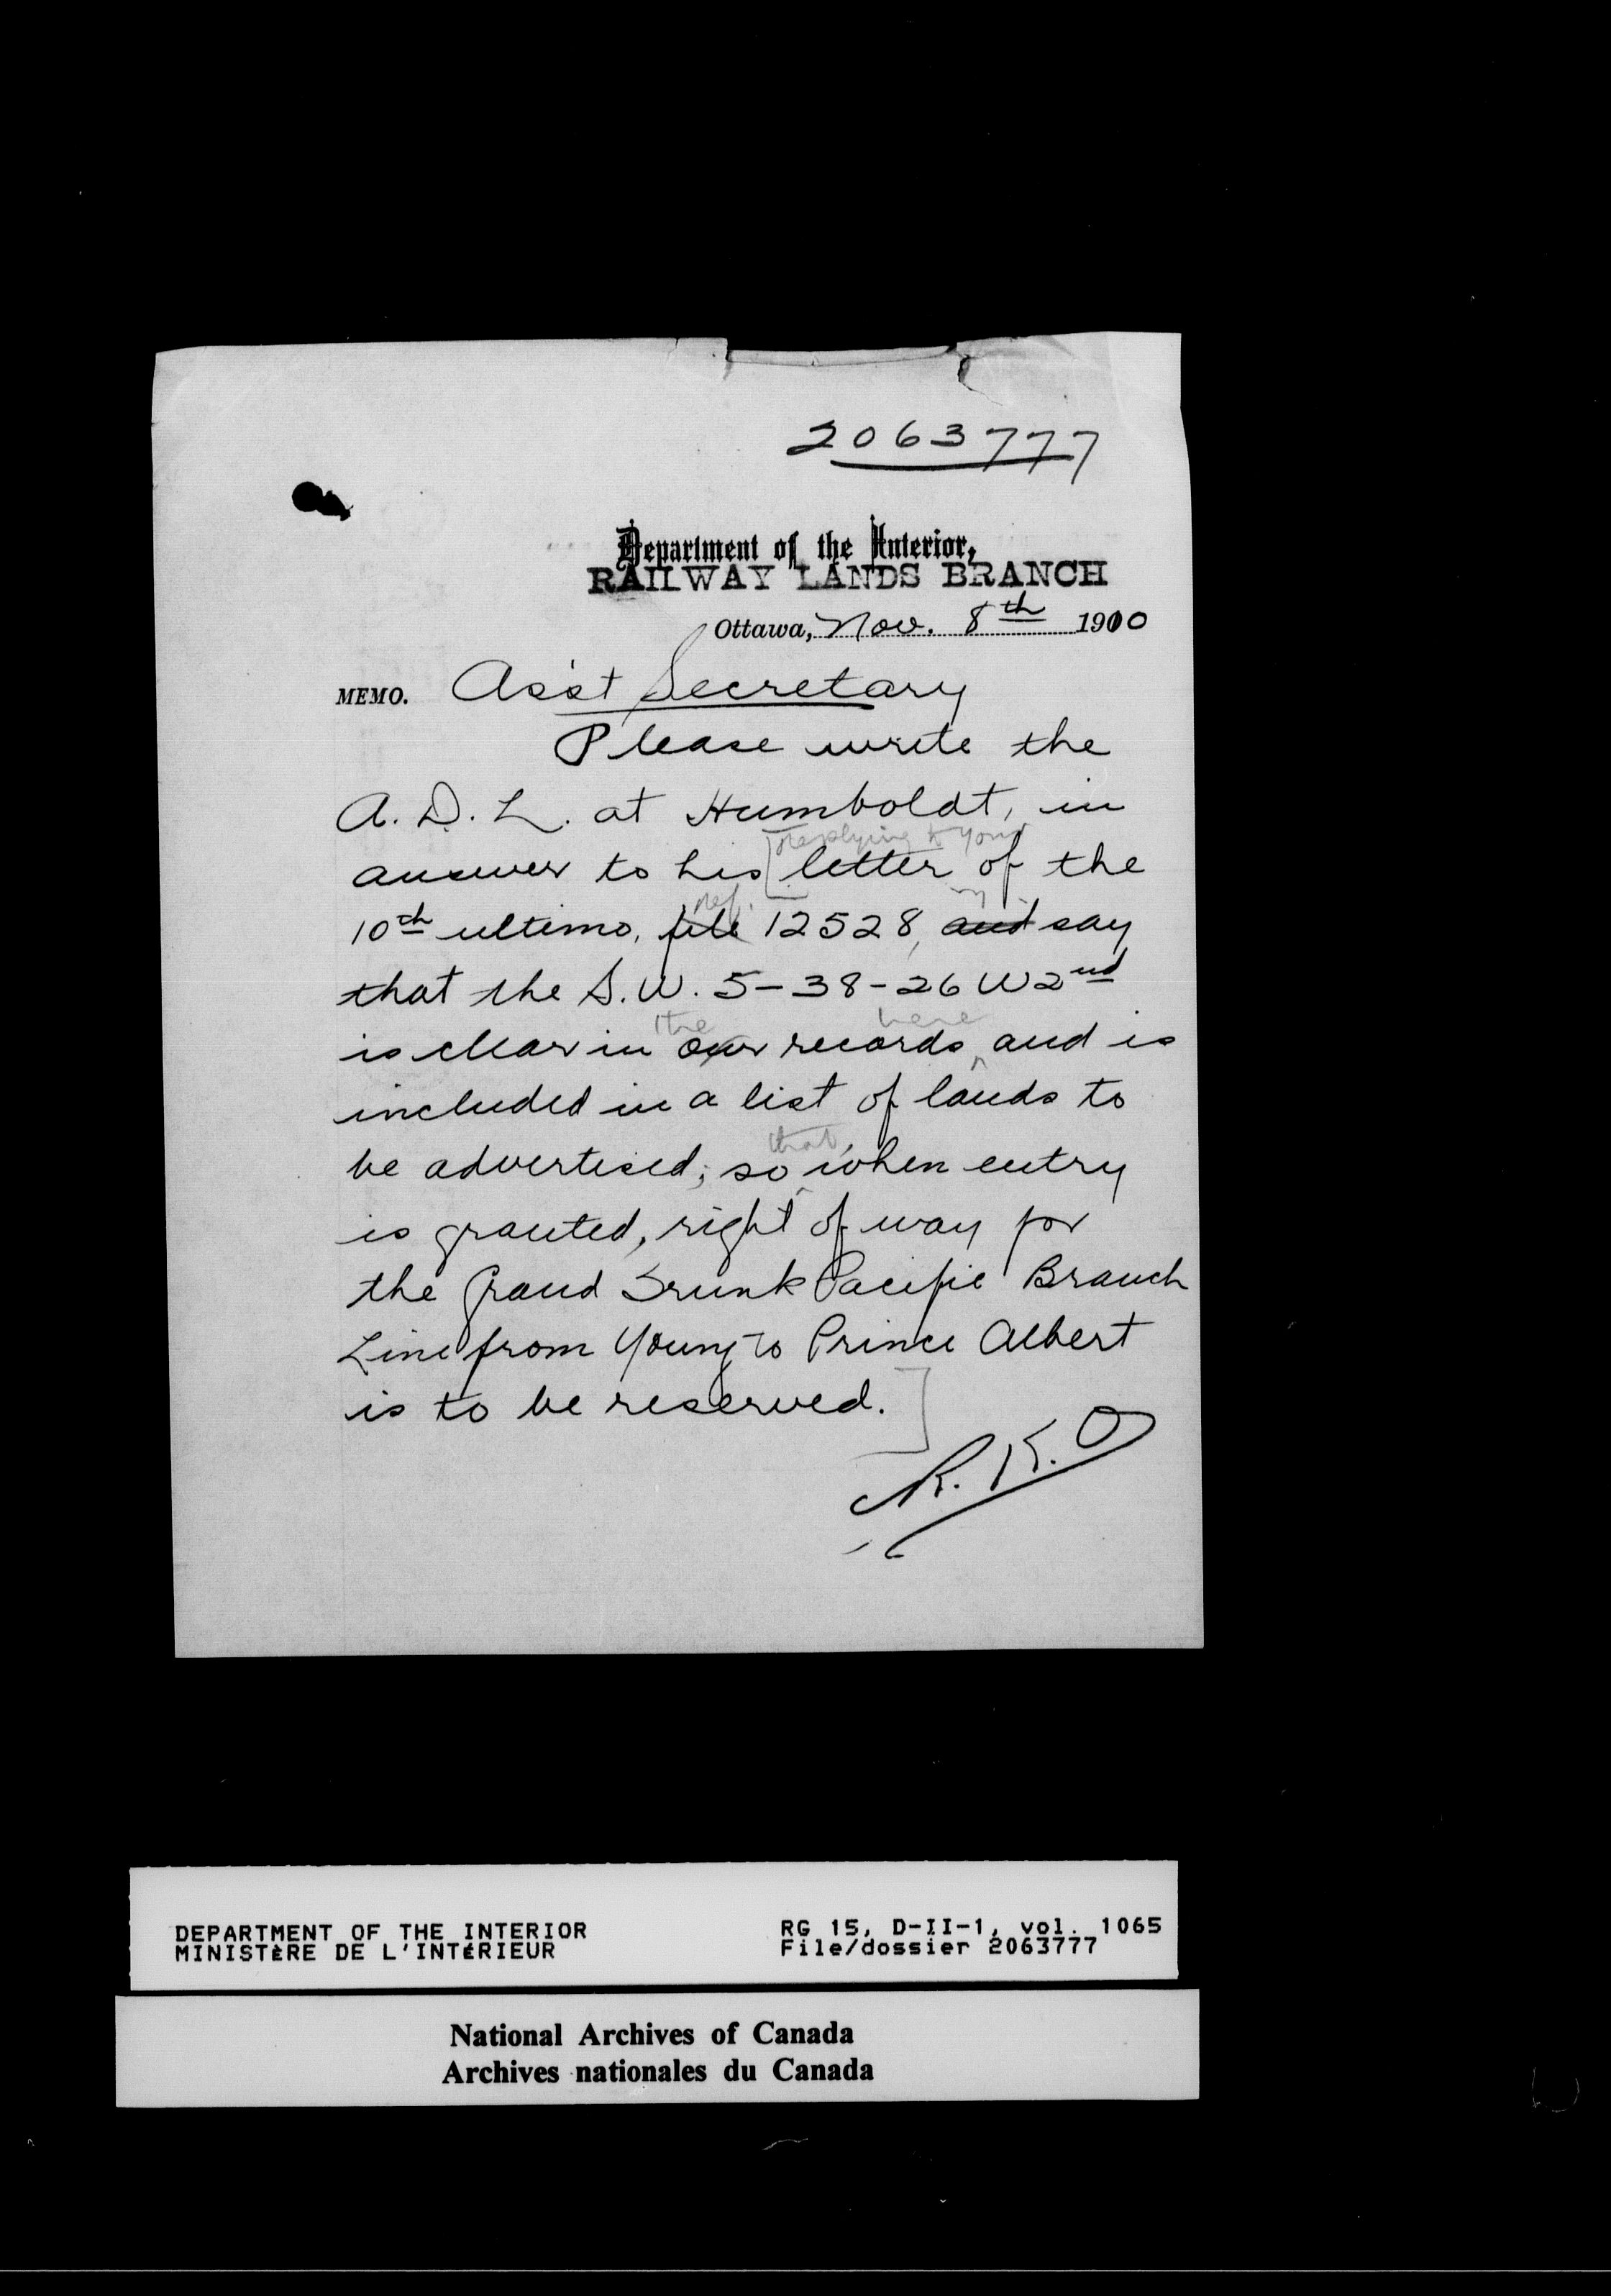 2063777
Department of the Interior,
RAILWAY LANDS BRANCH
Ottawa, Nov. 8th 1910
MEMO. Ass't Secretary
Please write the
A. D. L. at Humboldt, in
Replying to your
answer to his [letter of the
ref.
10th ultimo, file 12528, and say
that the S.W. 5-38-26 W 2nd
the here
is clear in our records, and is
included in a list of lands to
that
be advertised; so when entry
is granted, right of way for
the Grand Trunk Pacific Branch
Line from Young to Prince Albert
is to be reserved.]
R. K. O
DEPARTMENT OF THE INTERIOR
MINISTÈRE DE L'INTÉRIEUR
RG 15, D-II-1, vol. 1065
File/dossier 2063777
National Archives of Canada
Archives nationales du Canada